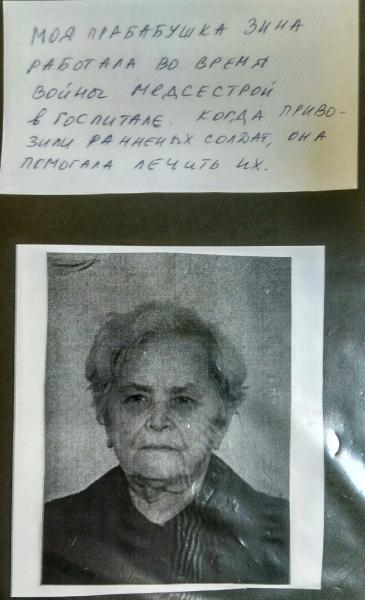 МОЯ ПРАБАБУШКА ЗИНА
РАБОТАЛА ВО ВРЕМЯ
ВОЙНЫ МЕДСЕСТРОЙ
В ГОСПИТАЛЕ. КОГДА ПРИВО-
ЗИЛИ РАННЕНЫХ СОЛДАТ, ОНА
ПОМОГАЛА ЛЕЧИТЬ ИХ.